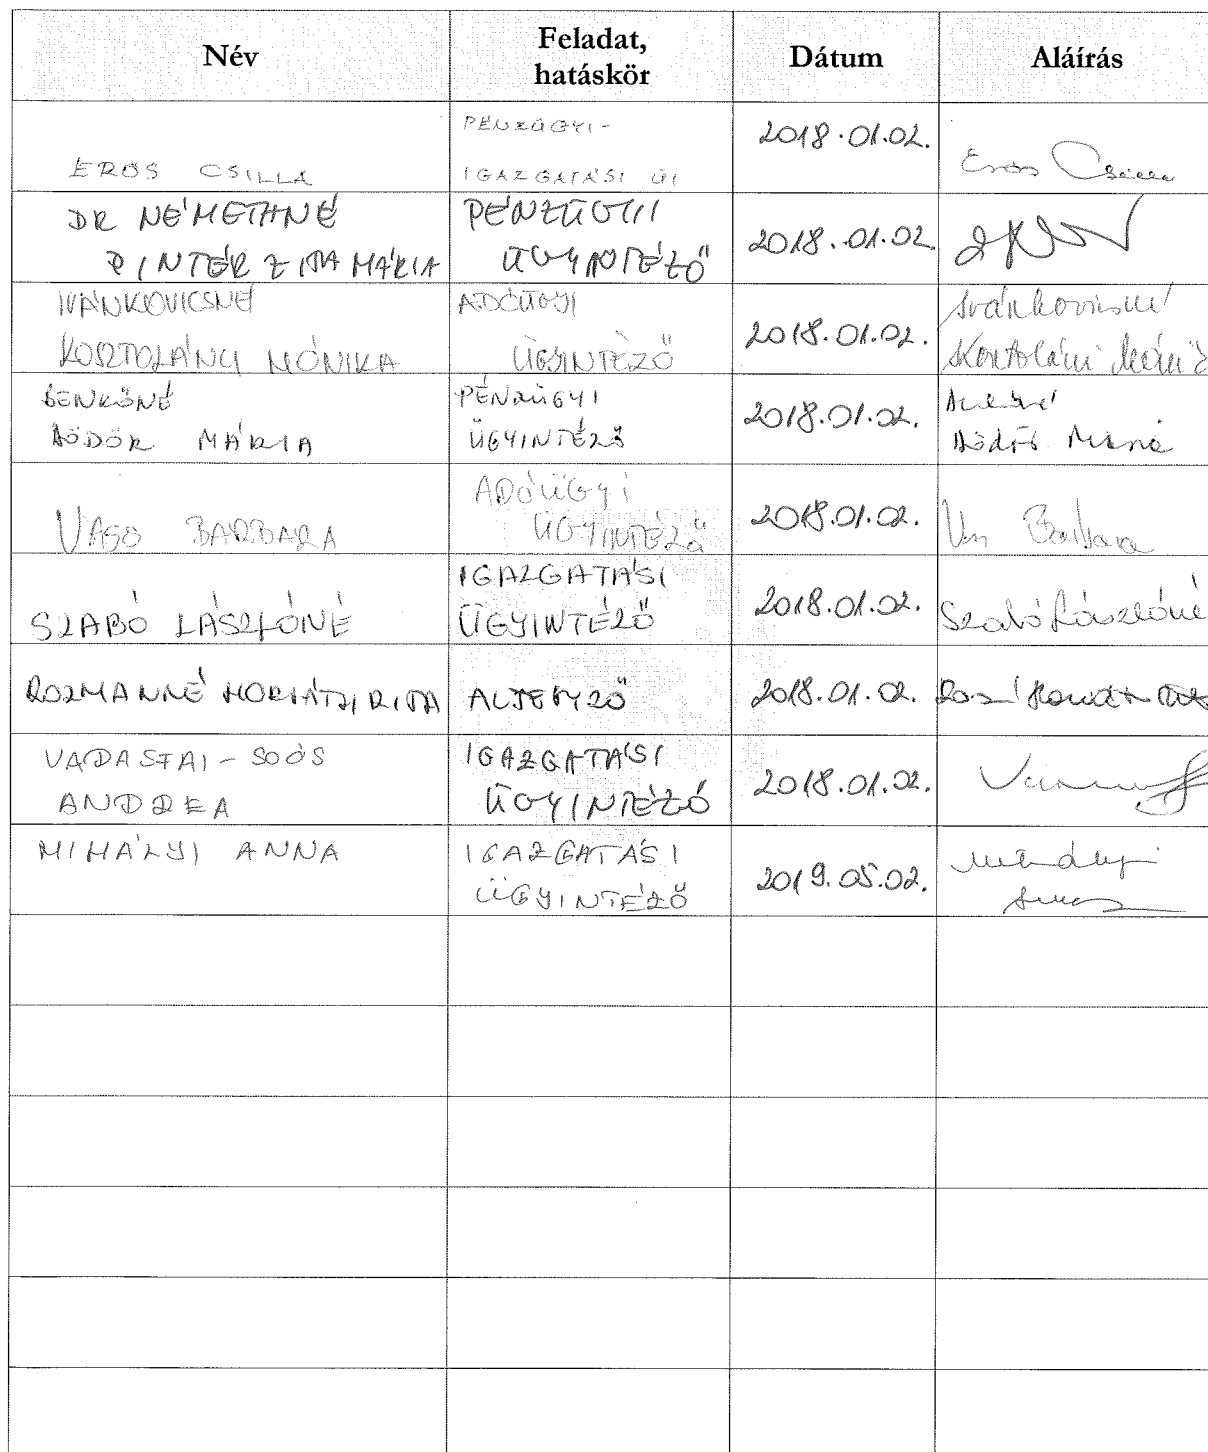 Név
Feladat,
hatáskör
Dátum
Aláírás
EROS CSILLA
PÉNZÜGYI-
IGAZGATÁSI ÜI
2018.01.02.
Erős Csilla
DR NÉMETHNÉ
PINTÉR ZITA MÁRIA
PÉNZÜGYI
ÜGYINTÉZŐ
2018.01.02.
IVÁNKOVICSNÉ
KOSZTOLÁNYI MÓNIKA
ADÓÜGYI
ÜGYINTÉZŐ
2018.01.02.
Ivánkovicsné
BENKŐNÉ
BÖDÖR MÁRIA
PÉNZÜGYI
ÜGYINTÉZŐ
2018.01.02.
Mária
VAGO BARBARA
ADÓÜGYI
ÜGYINTÉZŐ
2018.01.02.
Barbara
SZABÓ LÁSZLÓNÉ
IGAZGATÁSI
ÜGYINTÉZŐ
2018.01.02.
Szabó Lászlóné
ROZMANNÉ HORVÁTH RITA
ALJEGYZŐ
2018.01.02.
VADASFAI-SOÓS
ANDREA
IGAZGATÁSI
ÜGYINTÉZŐ
2018.01.02.
MIHÁLYI ANNA
IGAZGATÁSI
ÜGYINTÉZŐ
2019.05.02.
Mihályi
Anna